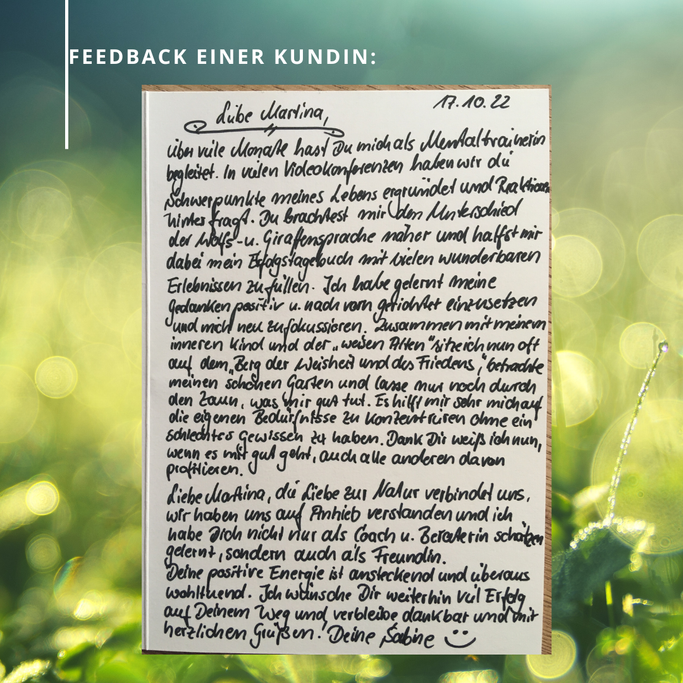 FEEDBACK EINER KUNDIN:
17.10.22
Liebe Martina,
über viele Monate hast Du mich als Mentaltrainerin
begleitet. In vielen Videokonferenzen haben wir die
Schwerpunkte meines Lebens ergründet und Reaktionen
hinterfragt. Du brachtest mir den Unterschied
der Wolfs- u. Giraffensprache näher und halfst mir
dabei mein Erfolgstagebuch mit vielen wunderbaren
Erlebnissen zu füllen. Ich habe gelernt meine
Gedanken positiv u. nach vorn gerichtet einzusetzen
und mich neu zu fokussieren. Zusammen mit meinem
inneren Kind und der „weisen Alten" sitze ich nun oft
auf dem „Berg der Weisheit und des Friedens", betrachte
meinen schönen Garten und lasse nur noch durch
den Zaun, was mir gut tut. Es hilft mir sehr mich auf
die eigenen Bedürfnisse zu konzentrieren ohne ein
schlechtes Gewissen zu haben. Dank Dir weiß ich nun,
wenn es mir gut geht, auch alle anderen davon
profitieren.
Liebe Martina, die Liebe zur Natur verbindet uns,
wir haben uns auf Anhieb verstanden und ich
habe Dich nicht nur als Coach u. Beraterin schätzen
gelernt, sondern auch als Freundin.
Deine positive Energie ist ansteckend und überaus
wohltuend. Ich wünsche Dir weiterhin viel Erfolg
auf Deinem Weg und verbleibe dankbar und mit
herzlichen Grüßen! Deine Sabine